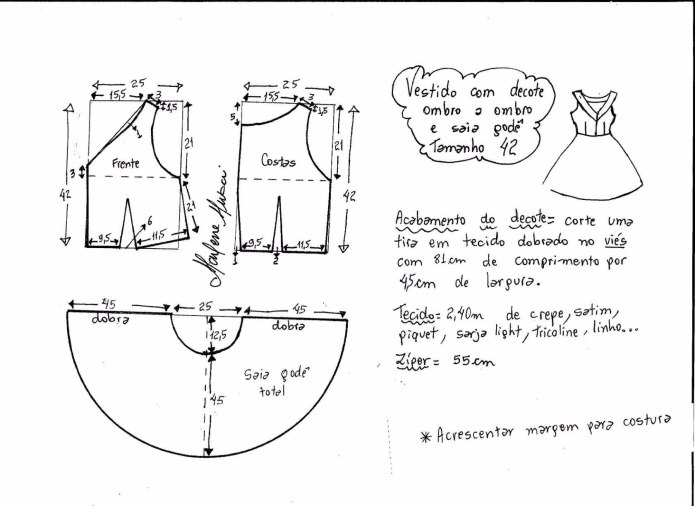 25
15,5
3
1,5
1
Frente
21
3
42
21
6
9,5
11,5
Marlene Mukai
25
15,5
3
1,5
5
21
Costas
42
9,5
11,5
1
2
Vestido com decote
ombro a ombro
e saia godê
Tamanho 42
Acabamento do decote= corte uma
tira em tecido dobrado no viés
com 81cm de comprimento por
45cm de largura.
Tecido= 2,40m de crepe, satim,
piquet, sarja light, tricoline, linho...
Zíper= 55cm
* Acrescentar margem para costura
45
25
45
dobra
dobra
12,5
Saia godê
total
45